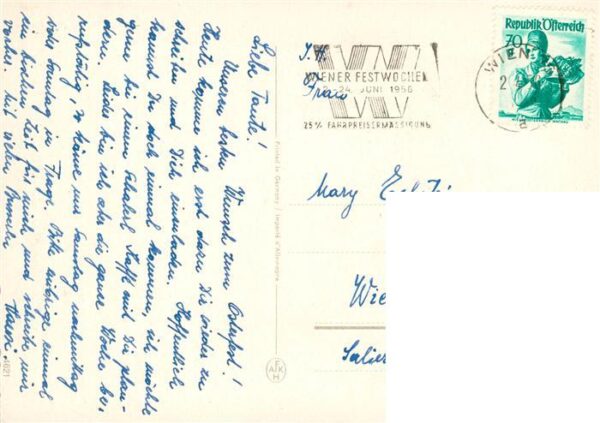 Liebe Tante!
Unseren besten Wunsch zum Osterfest!
Heute komme ich erst dazu Dir wieder zu
schreiben und Dich einzuladen. Hoffentlich
kannst Du doch einmal kommen, ich möchte
gern bei einem Schalerl Kaffe mit Dir plau-
dern. Leider bin ich aber die ganze Woche be-
rufstätig, so käme nur Samstag nachmittag
oder Sonntag in Frage. Bitte einige einmal
ein bischen Zeit für mich und schreibe mir
vorher. Mit vielen Busserln
Printed in Germany / Imprimé d'Allemagne
AFKH
4621
I. H.
Frau
WIENER FESTWOCHEN
24. JUNI 1956
25% FAHRPREISERMÄSSIGUNG
Republik Österreich
70
WIEN
Mary
Wie
Salie